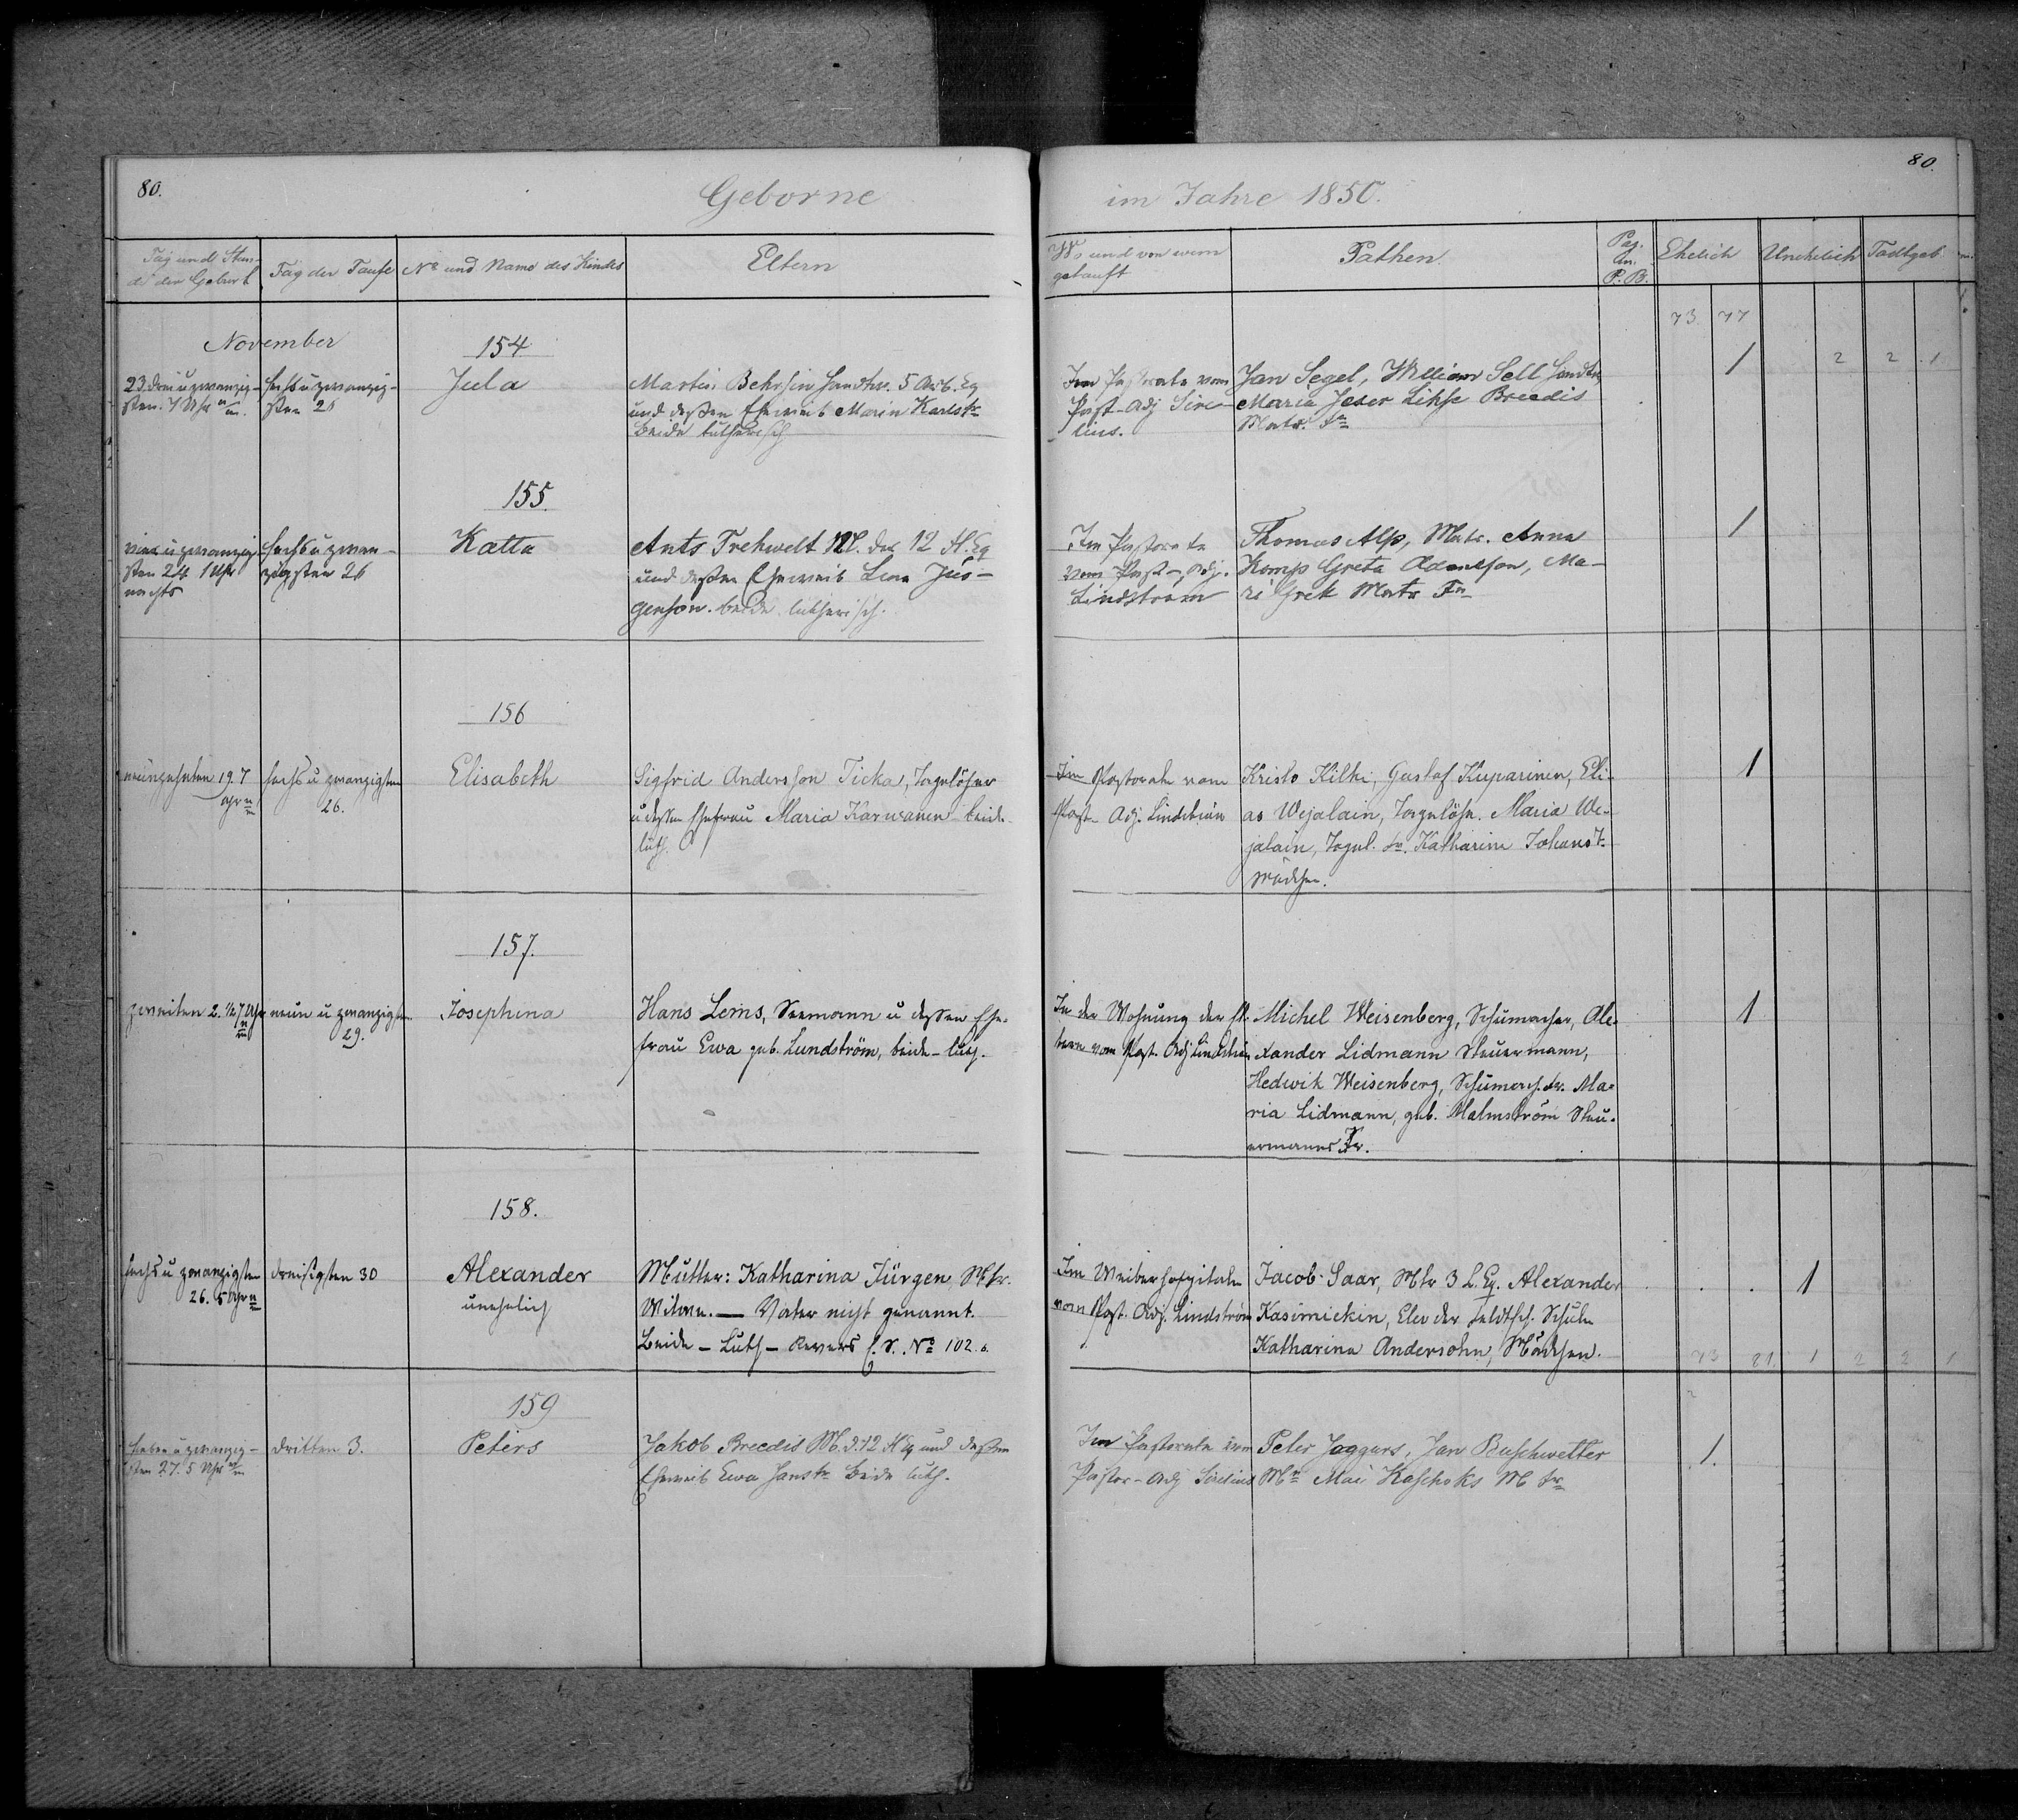 80.
Geborne
im Jahre 1850.
80.
Tag und Stun-
de der Geburt
Tag der Taufe
No und Name des Kindes
Eltern
Wo und von wem
getauft
Pathen
Pag.
im
P. B.
Ehelich
Unehelich
Todtgeb.
73. 77
2 2 1
November
154
23. drei u zwanzig-
sten. 7 Uhr
sechs u zwanzig-
sten 26
Jula
Martin Behrsin Handw. 5 Arb. Eq
und dessen Eheweib Marin Karlstr
beide lutherisch
Im Pastorate vom
Past-Adj Sire-
lius.
Jan Segel, William Sell Handw
Maria Jeser Lihse Breedis
Matr. Fr
1
155.
vier u zwanzig
sten 24 1 Uhr
nachts
sechs u zwan-
zigsten 26
Katta
Ants Trehwelt M. der 12 Fl. Eq
und dessen Eheweib Lena Jür-
genson. beide lutherisch.
Im Pastorate
vom Past-Adj.
Lindström
Thomas Alp, Matr. Anna
Komp Greta Adamson, Ma-
ri Grek Matr Fr
1
156
neunzehnten 19. 7
Uhr
sechs u zwanzigsten
26.
Elisabeth
Sigfrid Andersson Ticka, Tagelöhner
u dessen Ehefrau Maria Karwanen beide
luth.
Im Pastorate vom
Past- Adj. Lindström
Kristo Kilki, Gustaf Kuparinen, Eli-
as Wejalain, Tagelöhn. Maria We-
jalain, Tagel. Fr. Katharina Johanst.
Mädchen.
1
157.
zweiten 2. 1/2 7 Uhr
neun u zwanzigsten
29.
Josephina
Hans Lems, Seemann u dessen Ehe-
frau Ewa geb. Lundström, beide luth.
In der Wohnung der El-
tern vom Past. Adj Lindström
Michel Weisenberg, Schumacher, Ale-
xander Lidmann Steuermann,
Hedwik Weisenberg, Schumach. Fr. Ma-
ria Lidmann, geb. Malmström Steu-
ermanns Fr.
1
158.
sechs u zwanzigsten
26. 5 Uhr
dreisigsten 30
Alexander
unehelich
Mutter: Katharina Jürgen Mtr.
Witwe. — Vater nicht genannt.
Beide - Luth - Revers No 102.
Im Weiberhospitale
vom Past. Adj. Lindström
Jacob Saar, Mtr 3 L. Eq. Alexander
Kasimickin, Elev der Feldsch. Schule
Katharina Andersohn, Mädchen.
1
73 81. 1 2 2 1
159
sieben u zwanzig-
sten 27. 5 Uhr
dritten 3.
Peters
Jakob Breedis M. d. 12 Fl Eq und dessen
Eheweib Ewa Janstr beide luth.
Im Pastorate vom
Pastor-Adj Sirelius
Peter Jaggars, Jan Buschwetter
Mr Mai Kaschoks M Fr
1.